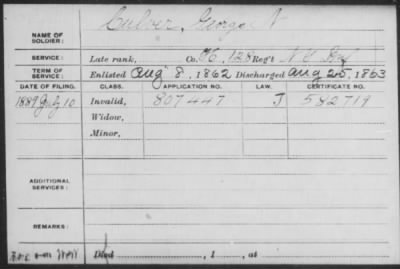 Culver, George N
NAME OF SOLDIER:
SERVICE: Late rank, Co. 128 Reg't N Y Inf
TERM OF SERVICE: Enlisted Aug 8, 1862 Discharged Aug 25, 1863
DATE OF FILING. CLASS. APPLICATION NO. LAW. CERTIFICATE NO.
1889 July 10 Invalid, 807447 J 582719
Widow,
Minor,
ADDITIONAL SERVICES:
REMARKS:
Died , 1 , at